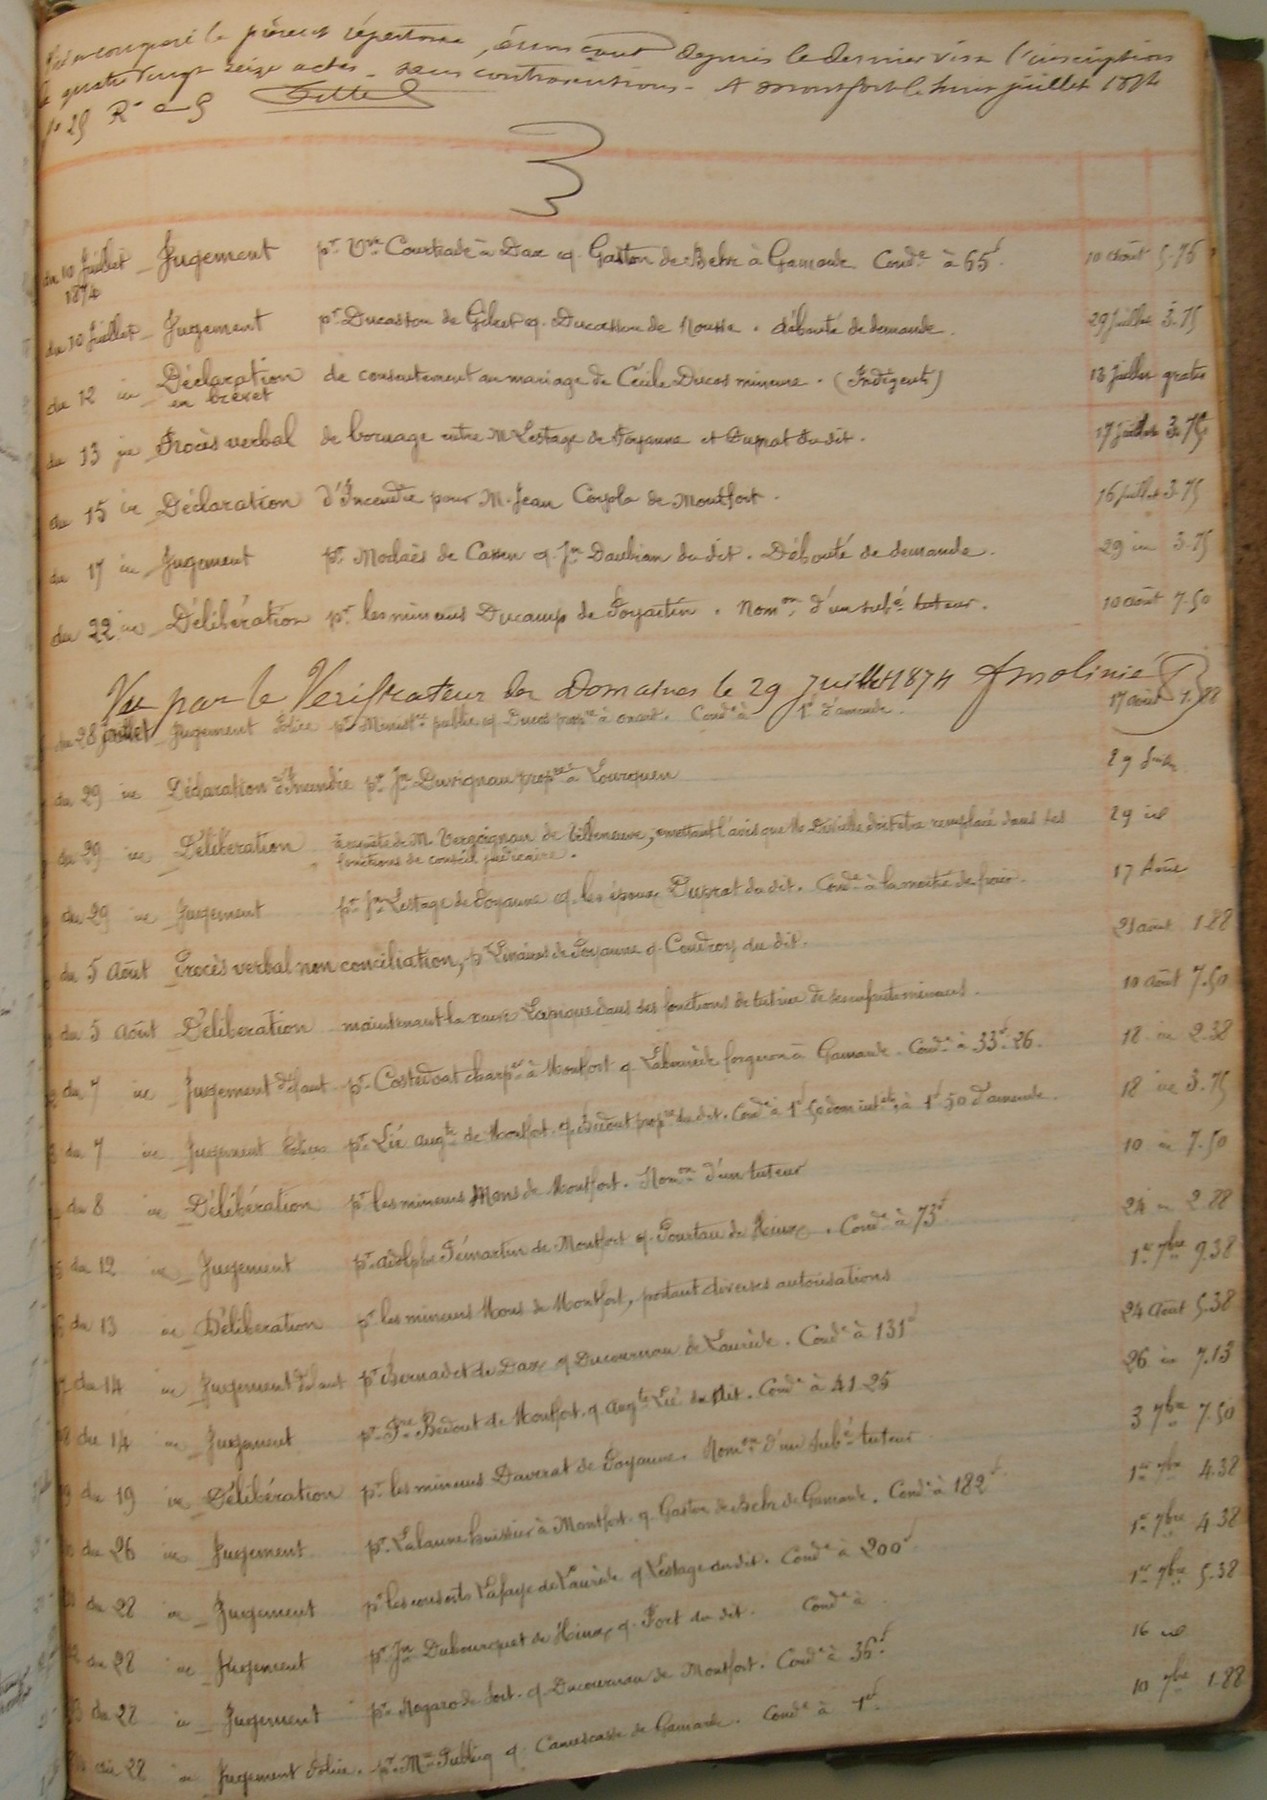 le présent répertoire, énonçant depuis le dernier visa l'inscription
quatre vingt seize actes sans contraventions - A Montfort le huit juillet 1874
du 10 Juillet Jugement pr Vve Courtiade à Dax q. Gaston de Behr à Gamarde Conde à 65f. 10 août 5.75
1874
du 10 Juillet Jugement pr Ducasson de Gibret q. Ducasson de Nousse. débouté de demande. 29 Juillet 3.75
du 12 Déclaration de consentement au mariage de Cécile Ducos mineure. (Indigents) 13 juillet gratis
en brevet
du 13 Procès verbal de bornage entre M Lestage de Poyanne et Duprat du dit. 17 juillet 3.75
du 15 Déclaration d'Incendie pour M. Jean de Montfort. 16 juillet 3.75
du 17 Jugement pr de Cassen q. Jn Daubian du dit. Débouté de demande. 29 3.75
du 22 Délibération pr les mineurs Ducamp de Poyartin. Nomon d'un subé tuteur. 10 août 7.50
Vu par le Vérificateur des Domaines le 29 Juillet 1874
du 28 juillet Jugement Police pr Ministre public q. Ducos propre à onard. Conde à 1f d'amende. 17 août 1.88
du 29 Déclaration d'Incendie pr Jn Duvignau propre à Lourquen 29 Juil.
du 29 Délibération requête de M. Vergoignan de Villeneuve, émettant l'avis que doit être remplacé dans ses 29
fonctions de conseil judiciaire.
du 29 Jugement pr Jn Lestage de Poyanne q. les époux Duprat du dit. Conde à la moitié de frais. 17 Août
du 5 Août Procès verbal non conciliation, pr de Poyanne q. Coudroy du dit. 21 août 1.88
du 5 Août Délibération maintenant la veuve dans ses fonctions de tutrice de ses enfants mineurs. 10 août 7.50
du 7 Jugement défaut pr Costedoat charper à Montfort q. forgeron à Gamarde. Conde à 33f.26. 18 2.38
du 7 Jugement pr Lié Augte de Montfort. q. Bédout propre du dit. Conde à 1f 50 dom. intts, à 1f 50 d'amende. 18 3.75
du 8 Délibération pr les mineurs Mons de Montfort. Nomon d'un tuteur 10 7.50
du 12 Jugement pr Adolphe de Montfort q. Pourtau de Hinx. Conde à 73f 24 2.88
du 13 Délibération pr les mineurs Mons de Montfort, portant diverses autorisations 1er 7bre 9.38
du 14 Jugement défaut pr Bernadet de Dax q Ducournau de Laurède. Conde à 131f 24 Août 5.38
du 14 Jugement pr Bédout de Montfort. q Augte Lié du dit. Conde à 41.25 26 7.13
du 19 Délibération pr les mineurs Daverat de Poyanne. Nomon d'un subé tuteur 3 7bre 7.50
du 26 Jugement pr Lalanne huissier à Montfort. q. Gaston de Behr de Gamarde. Conde à 182f. 1er 7bre 4.38
du 28 Jugement pr les consorts Lafaye de Laurède q Lestage du dit. Conde à 200f. 1er 7bre 4.38
du 28 Jugement pr Jn Dubourcquet de Hinx q. Fort du dit. Conde à 1er 7bre 5.38
du 28 Jugement pr Nogaro de Sort. q. Ducournau de Montfort. Conde à 36f. 16
du 28 Jugement Police. pr Mre Public q. de Gamarde. Conde à 1f. 10 7bre 1.88